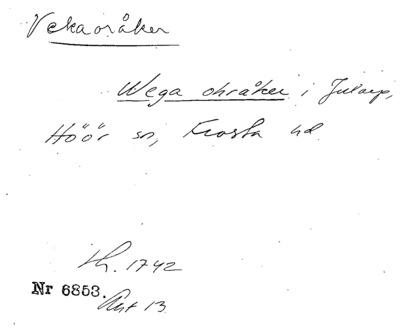 Vekaoråker
Wega ohråker i Jularp,
Höör sn, Frosta hd
Lh. 1742
Nr 6853. Akt 13.